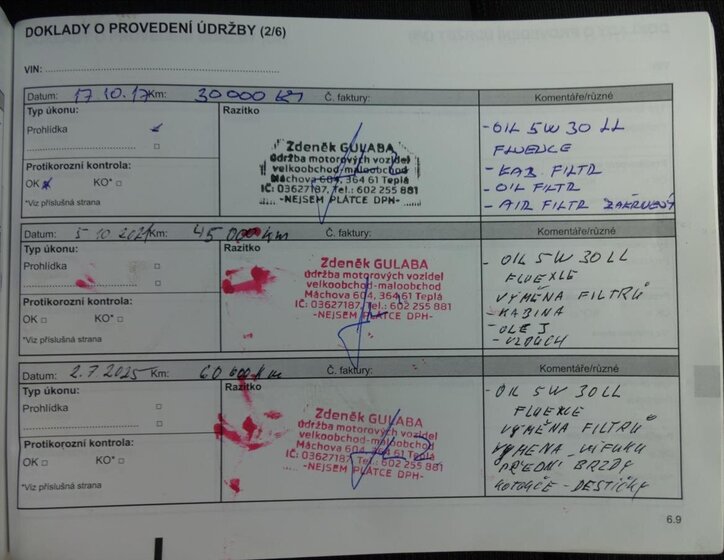 DOKLADY O PROVEDENÍ ÚDRŽBY (2/6)
VIN:
Datum: 17.10.17 Km: 30000 km Č. faktury: Komentáře/různé
Typ úkonu: Razítko
Prohlídka
Protikorozní kontrola:
OK KO*
*Viz příslušná strana
Zdeněk GULABA
údržba motorových vozidel
velkoobchod-maloobchod
Máchova 604, 364 61 Teplá
IČ: 03627187, Tel.: 602 255 881
-NEJSEM PLÁTCE DPH-
- OIL 5W30 LL
FLUENCE
- KAB. FILTR
- OIL FILTR
- AIR FILTR
Datum: 5 10 2021 Km: 45 000 km Č. faktury: Komentáře/různé
Typ úkonu: Razítko
Prohlídka
Protikorozní kontrola:
OK KO*
*Viz příslušná strana
Zdeněk GULABA
údržba motorových vozidel
velkoobchod-maloobchod
Máchova 604, 364 61 Teplá
IČ: 03627187, Tel.: 602 255 881
-NEJSEM PLÁTCE DPH-
- OIL 5W30LL
FLUEXLE
VÝMĚNA FILTRŮ
- KABINA
- OLEJ
- VZDUCH
Datum: 2.7.2025 Km: 60 000 km Č. faktury: Komentáře/různé
Typ úkonu: Razítko
Prohlídka
Protikorozní kontrola:
OK KO*
*Viz příslušná strana
Zdeněk GULABA
údržba motorových vozidel
velkoobchod-maloobchod
Máchova 604, 364 61 Teplá
IČ: 03627187, Tel.: 602 255 881
-NEJSEM PLÁTCE DPH-
- OIL 5W30LL
FLUEXLE
VÝMĚNA FILTRŮ
VÝMĚNA VÝFUKU
PŘEDNÍ BRZDY
KOTOUČE - DESTIČKY
6.9